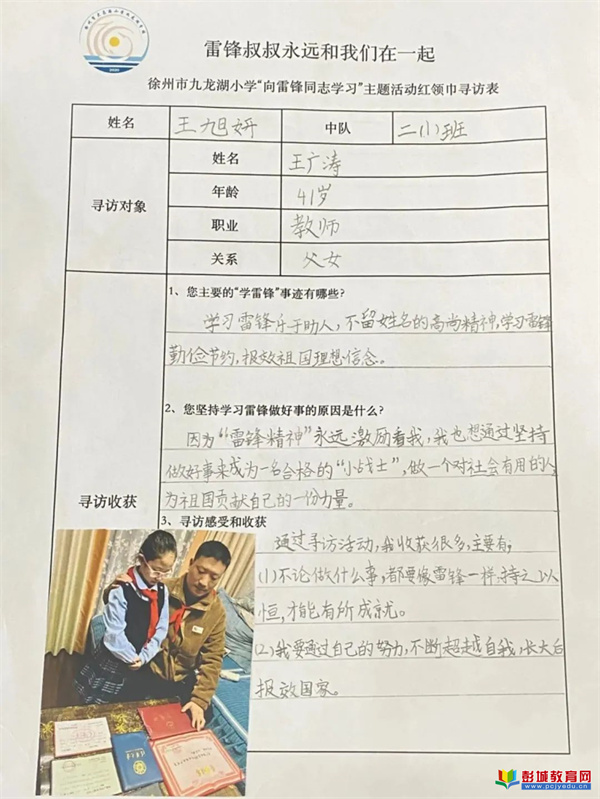 雷锋叔叔永远和我们在一起
徐州市九龙湖小学“向雷锋同志学习”主题活动红领巾寻访表
姓名 王旭妍 中队 二(1)班
寻访对象
姓名 王广涛
年龄 41岁
职业 教师
关系 父女
寻访收获
1、您主要的“学雷锋”事迹有哪些?
学习雷锋乐于助人,不留姓名的高尚精神,学习雷锋
勤俭节约,报效祖国理想信念。
2、您坚持学习雷锋做好事的原因是什么?
因为“雷锋精神”永远激励着我,我也想通过坚持
做好事来成为一名合格的“小战士”,做一个对社会有用的人
为祖国贡献自己的一份力量。
3、寻访感受和收获
通过寻访活动,我收获很多,主要有:
(1)不论做什么事,都要像雷锋一样,持之以
恒,才能有所成就。
(2)我要通过自己的努力,不断超越自我,长大后
报效国家。
彭城教育网
www.pcjyedu.cn